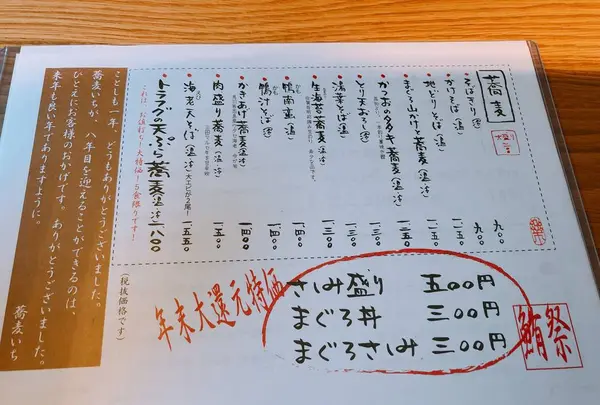 蕎麦
そばきり(冷) 九〇〇
かけそば(温) 九〇〇
地どりそば(温) 一二五〇
まぐろ山かけ蕎麦(温・冷) 一二五〇
かつおのタタキ蕎麦(温・冷) 一二五〇
とり天おろし(冷) 一二〇〇
湯葉そば(温) 一三〇〇
生海苔蕎麦(温・冷) 一三〇〇
鴨南蛮(温) 一四〇〇
鴨汁そば(冷) 一四〇〇
かきあげ蕎麦(温・冷) 一四〇〇
肉盛り蕎麦(温・冷) 一五〇〇
海老天そば(温・冷) 大エビが2尾! 一五五〇
トラフグの天ぷら蕎麦(温・冷) 一八〇〇
これは、お値打ち!大特価!5食限りです!
(税抜価格です)
ことしも一年、どうもありがとうございました。
蕎麦いちが、八年目を迎えることができるのは、
ひとえにお客様のおかげです。ありがとうございました。
来年も良い年でありますように。
蕎麦いち
年末大還元特価
さしみ盛り 五〇〇円
まぐろ丼 三〇〇円
まぐろさしみ 三〇〇円
鮪祭